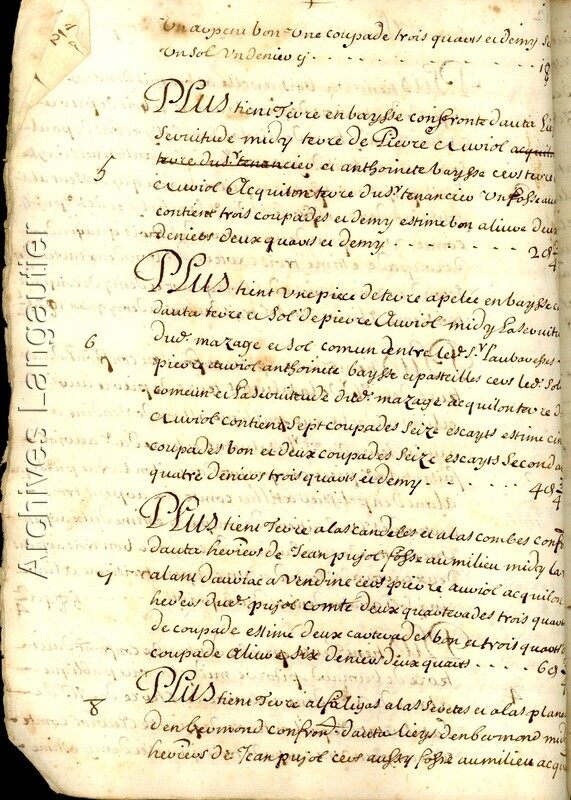 un arpent bon une coupade trois quarts et demy
un sol un denier cy . . . . . . . . . 1 s
PLUS tient terre en baysse confronte dauta
servitude midy terre de Pierre auriol acquilon
terre du sr. tenancier et anthoinete baysse cers terre
5
auriol Acquilon terre du sr. tenancier un fosse au
contient trois coupades et demy estime bon alivre deux
deniers deux quarts et demy . . . . . . . . . 2 d
PLUS tient une piece de terre apelée en baysse
dauta terre et sol de pierre auriol midy la servitude
6
dud. mazage et sol comun entre led. sr.
pierre auriol anthoinete baysse et pasteilles cers led. sol
comeun et la servitude dud. mazage acquilon terre d
auriol contient sept coupades seize escayts estime cin
coupades bon et deux coupades seize escayts second a
quatre deniers trois quarts et demy . . . 4 d 3/4
PLUS tient terre a las candeles et a las combes conf
dauta heritiers de Jean pujol fosse au milieu midy la
7
alant dauriac a vendine cers pierre auriol acquilon
heriers dud. pujol comte deux quarterades trois quarts
de coupade estime deux carterades bon et trois quarts
coupade alivre six deniers deux quarts . . . . 6 d
8
PLUS tient terre al faligas a las sevetes et a las planes
den bermond confron. dauta lieys den bermond midy
heriers de Jean pujol cers aussy fosse au milieu acqu
Archives Langautier